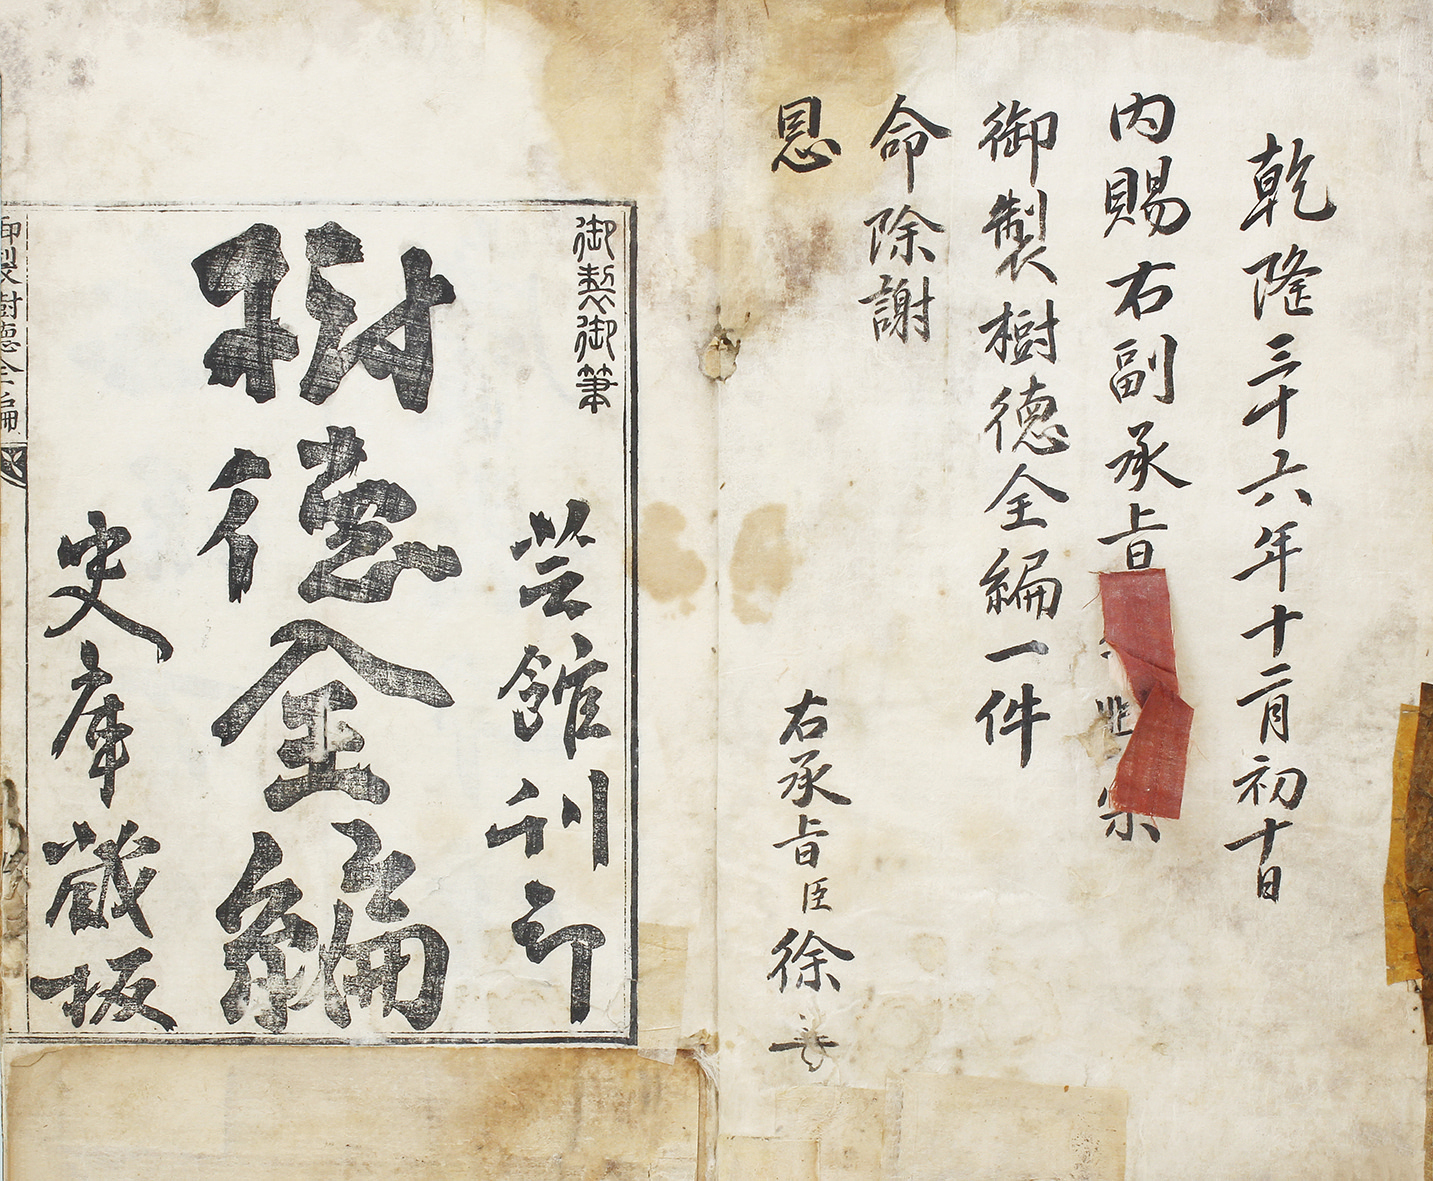 乾隆三十六年十二月初十日
內賜右副承旨
御製樹德全編一件
命除謝
恩
右承旨臣徐
御製御筆
芸館刊印
樹德全編
史庫藏板
御製樹德全編